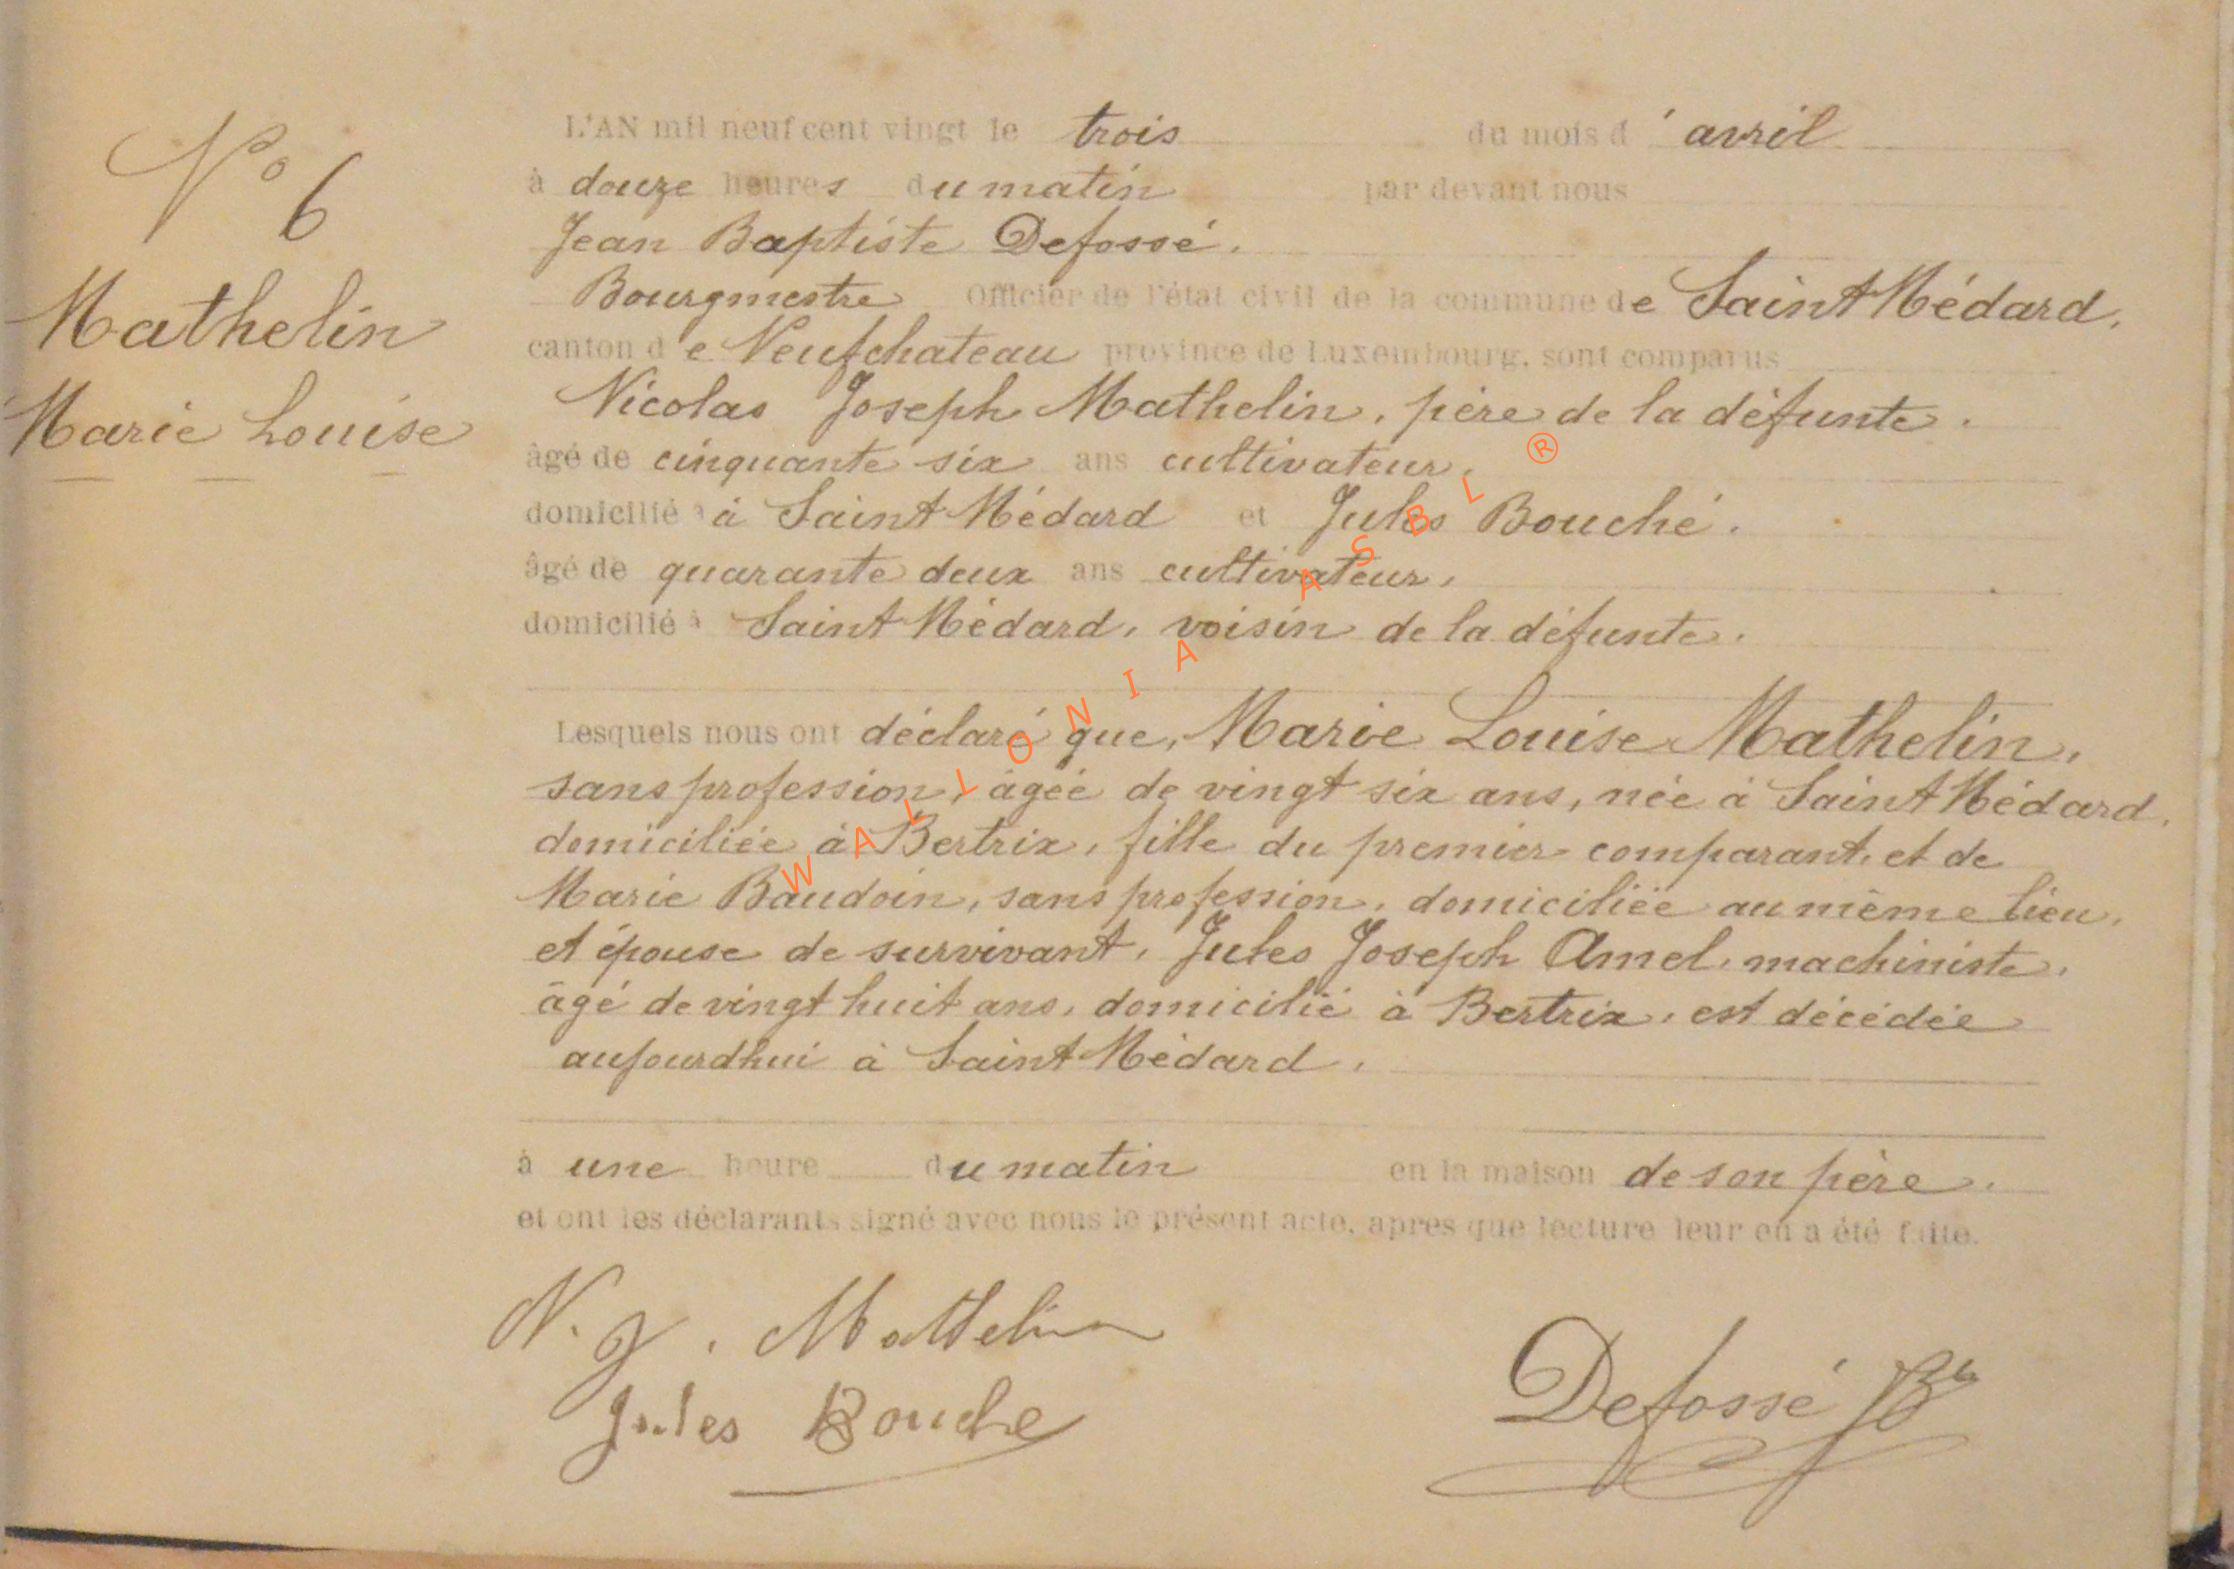 N° 6
Mathelin
Marie Louise
L'AN mil neuf cent vingt le trois du mois d'avril
à douze heures du matin par devant nous
Jean Baptiste Defossé.
Bourgmestre Officier de l'état civil de la commune de Saint Médard,
canton de Neufchateau province de Luxembourg, sont comparus
Nicolas Joseph Mathelin, père de la défunte.
âgé de cinquante six ans cultivateur,
domicilié à à Saint Médard et Jules Bouché.
âgé de quarante deux ans cultivateur,
domicilié à Saint Médard, voisin de la défunte.
Lesquels nous ont déclaré que, Marie Louise Mathelin,
sans profession, âgée de vingt six ans, née à Saint Médard,
domiciliée à Bertrix, fille du premier comparant, et de
Marie Baudoin, sans profession, domiciliée au même lieu,
et épouse de survivant, Jules Joseph Amel, machiniste,
âgé de vingt huit ans, domicilié à Bertrix, est décédée
aujourdhui à Saint Médard,
à une heure du matin en la maison de son père.
et ont les déclarants signé avec nous le présent acte, après que lecture leur en a été faite.
N. J. Mathelin
Jules Bouche
Defossé JB
WALLONIA ASBL ®